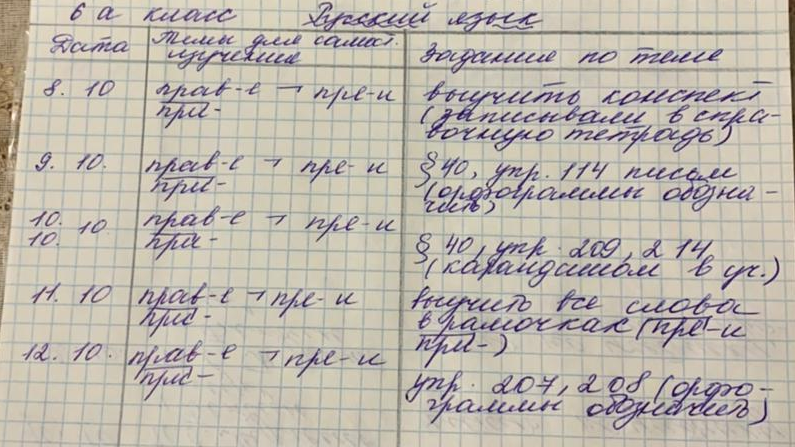 6 а класс Русский язык
Дата Темы для самост. изучения Задания по теме
8. 10 прав-е ¬ пре- и выучить конспект
при- (записывали в спра-
вочную тетрадь)
9. 10. прав-е ¬ пре- и § 40, упр. 114 письм
при- (орфограммы обозна-
чить)
10. 10 прав-е ¬ пре- и
10. при- § 40, упр. 209, 214
(карандашом в уч.)
11. 10 прав-е ¬ пре- и выучить все слова
при- в рамочках (пре- и
при-)
12. 10. прав-е ¬ пре- и
при- упр. 207, 208 (орфо-
граммы обозначить)